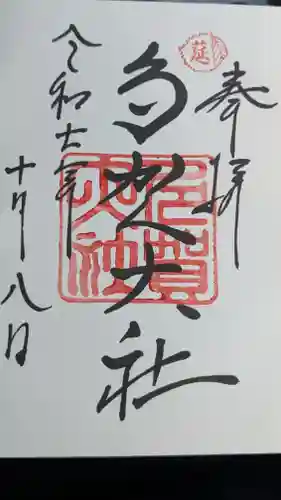 莚
奉拝
多賀大社
多賀
大社
令和六年
十月八日